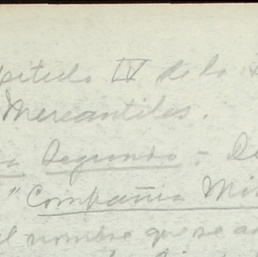 Capítulo IV de la
Mercantiles.
Segundo - De
"Compañia Mi
el nombre que se a